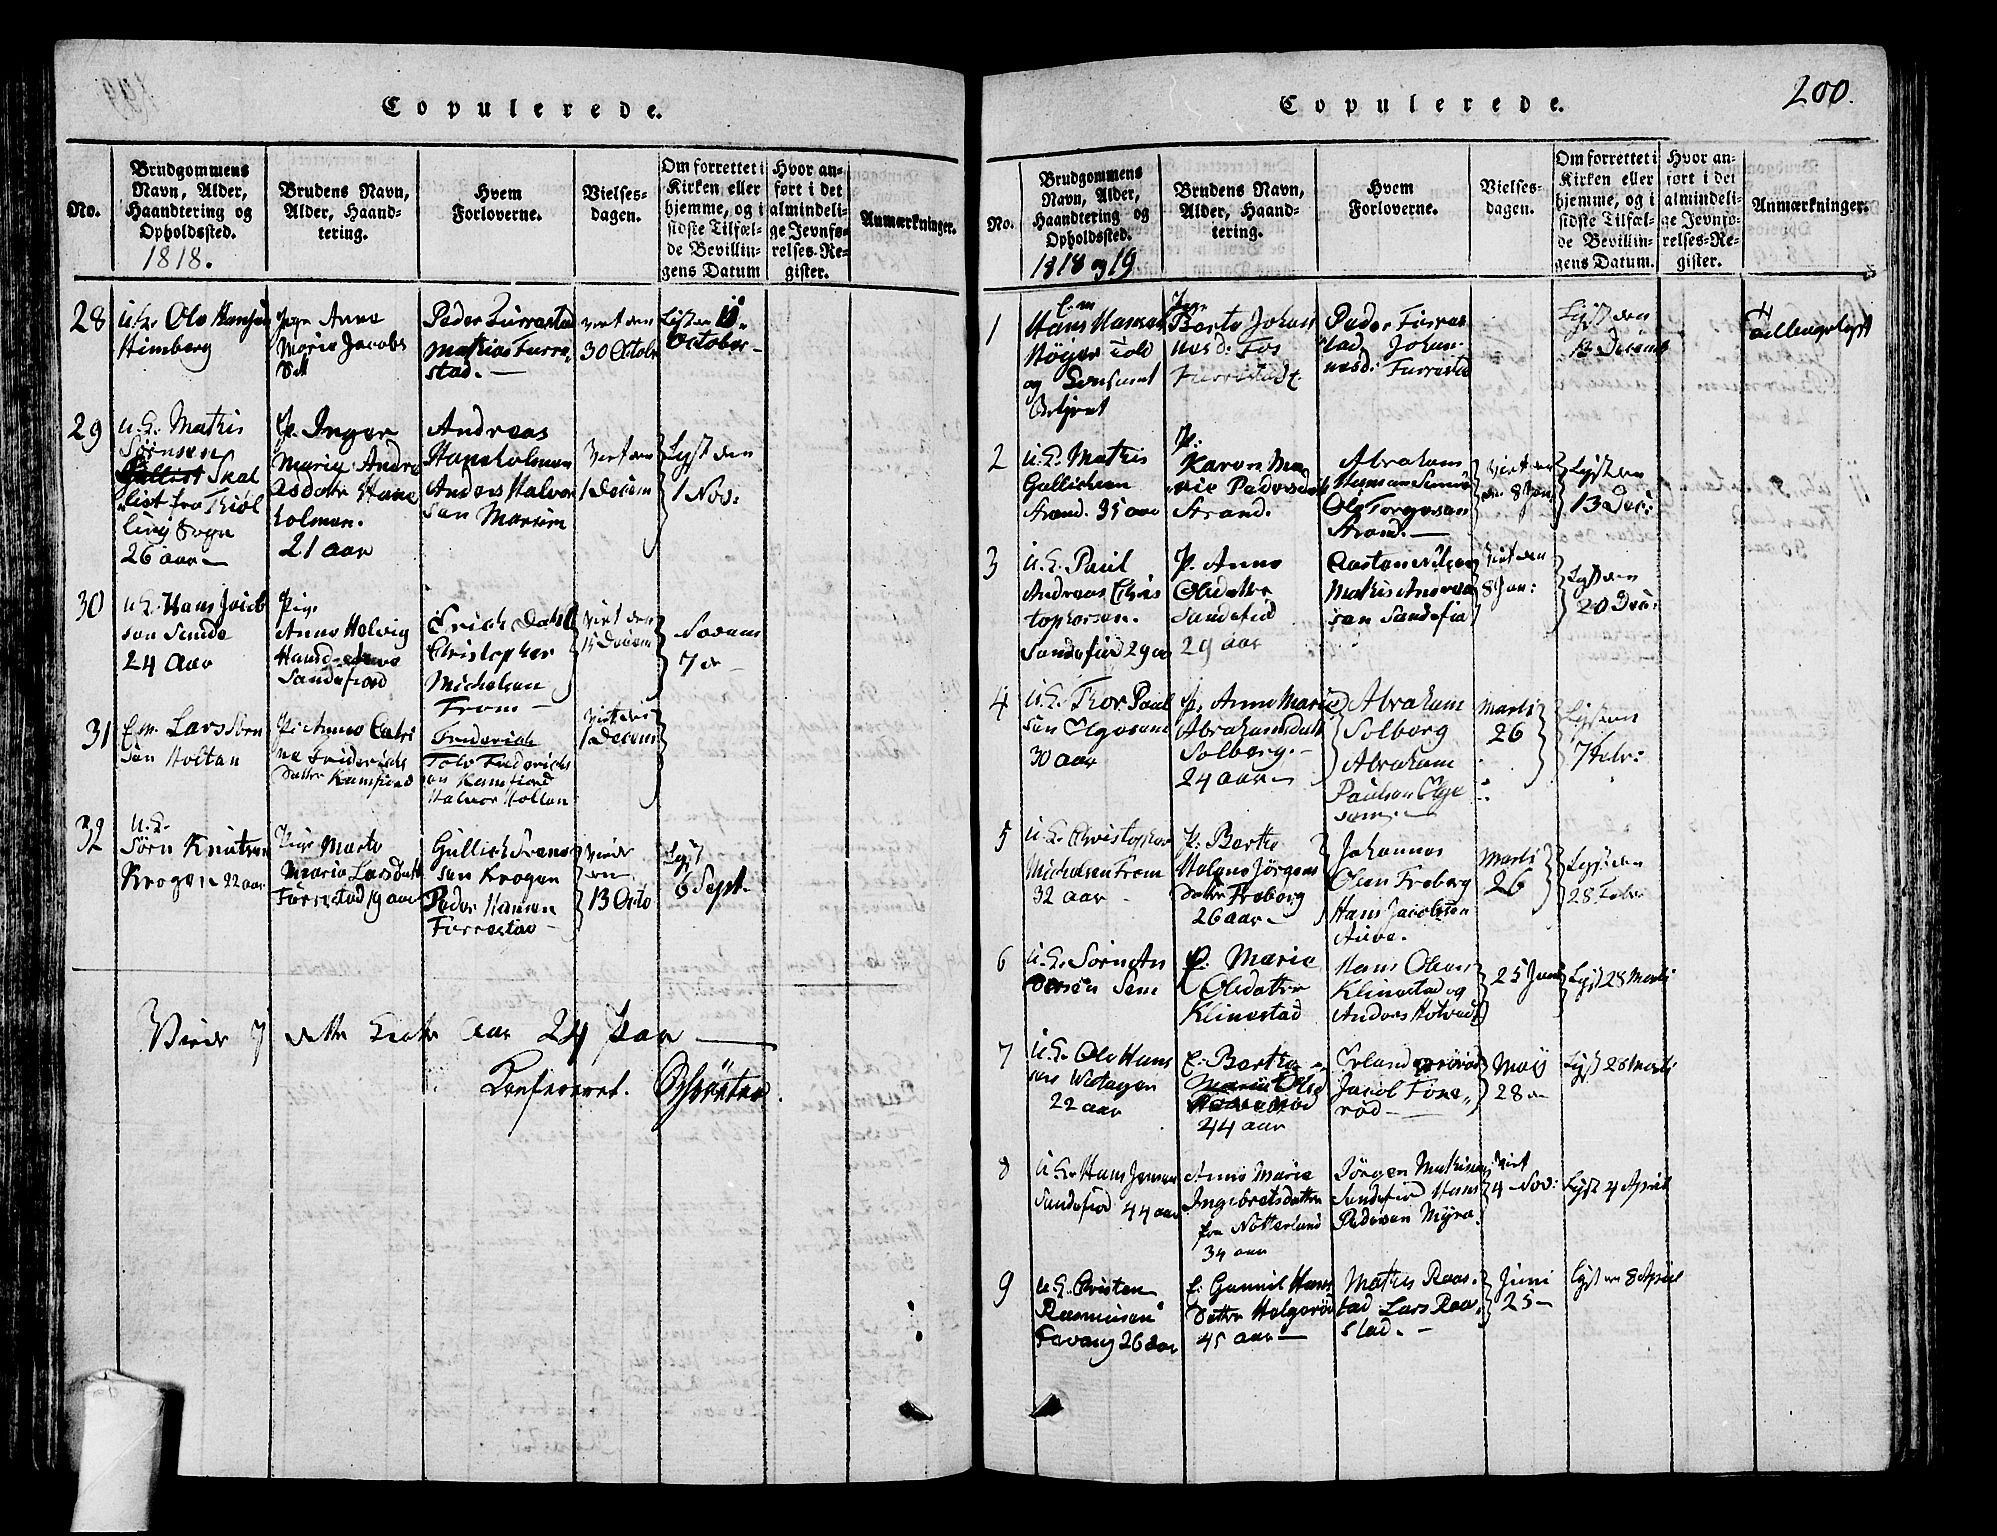 Copulerede.
No.
Brudgommens
Navn, Alder,
Haandtering og
Opholdssted.
1818.
Brudens Navn,
Alder, Haand-
tering.
Hvem
Forloverne.
Vielses-
dagen.
Om forrettet i
Kirken eller
hjemme, og i
sidste Tilfæl-
de Bevillin-
gens Datum
Hvor an-
ført i det
almindeli-
ge Jevnfø-
relses-Re-
gister.
Anmærkninger.
28
u.K. Ole Hansen
Himberg
Pige Anne
Maria Jacobs
Peder Furrestad
Mathias Furre-
stad.
viet den
30 Octobr
Lyst den
October
29
u.K. Mathis
Sørnsen
Skal
list fra Tiøl
ling Sogn
26 aar
P. Inger
Maria Andre
asdatr Hane
holmen.
21 aar
Andreas
Haneholmen
Anders Halvor
sen
viet den
1 Decem
Lyst den
1 Nov:
30
u.K. Hans Jacob
sen Sunde
24 Aar
Pige
Anne Helvig
Hansd
Sandefiord
Erich Dahl
Christopher
Michelsen
From
viet den
15 Decem
Sovam
7 de
31
E.m. Lars Sørn
sen Holtan
P. Anne Catri
ne Friderichs
Datter Kamfiord
Friderich
Tolv Friderichs
en Kamfiord
Halvor Holtan
viet den
1 Decem
32
u.K.
Sørn Knutsen
Krogen 22 aar
Pige Marte
Maria Larsdatt
Furrestad 19 aar
Gullich Svens
sen Krogen
Peder Hansen
Furrestad
viede
den
13 Octo
Lyst
6 Sept.
Viede i dette Kirke Aar 24 Par
Confereret.
Copulerede.
200.
No.
Brudgommens
Navn, Alder,
Haandtering og
Opholdssted.
1818 og 19
Brudens Navn,
Alder, Haand-
tering.
Hvem
Forloverne.
Vielses-
dagen.
Om forrettet i
Kirken eller
hjemme, og i
sidste Tilfæl-
de Bevillin-
gens Datum.
Hvor an-
ført i det
almindeli-
ge Jevnfø-
relses-Re-
gister.
Anmærkninger.
1
E.m
Hans
Told
og Consumt
Betjent
Pige
Berte Johan
nesd: Fos
Furrestad
Peder Furres
tad Johan
nesd: Furresta
Lyst den
Decemb
Tillingelyst
2
u.K. Mathis
Gullichsen
Strand. 35 aar
P.
Karen Ma
rie Pedersdatt
Strand.
Abraham
Ole Torgersen
Strand.
viet den
8 Jan
Lyst den
13 Dec:
3
u.K. Paul
Andreas Chris
tophersen.
Sandefiord 29 aar
P. Anne
Olsdatter
Sandefiord
29 aar
Carsten Nilsen
Mathis Andrea
sen Sandefio
viet den
8 Jan:
Lyst den
20 Dec:
4
u.K. Thor Paul
sen Elgesem
30 aar
P. Anne Marie
Abrahamsdatt
Solberg.
24 aar
Abraham
Solberg
Abraham
Paulsen Elge
sem.
Marti
26
Lyst den
7 Febr:
5
u.K. Christopher
Michelsen From
32 aar
P. Berthe
Helene Jørgens
Datter Freberg
26 aar
Johannes
Olsen Freberg
Hans Jacobsen
Auve.
Marti
26
Lyst den
28 Febr
6
u.K. Sørn An
dersen Sem
P. Maria
Olsdatter
Klinestad
Hans Olsen
Klinestad og
Anders Holvedt
25 Juni
Lyst 28 Marti
7
u.K. Ole Hans
sen Virtagen
22 aar
E. Berthe
Maria Olsd
44 aar
Erland
Jacob Fone,,
rød
Maij
28
Lyst 28 Marti
8
u.K. Hans Jensen
Sandefiord 44 aar
Anne Marie
Ingebretsdatter
fra Nøtterland
34 aar
Jørgen Mathisen
Sandefiord Hans
Pedersen Myra.
viet
4 Nov:
Lyst 4 April
9
u.K. Christen
Rasmusen
Fevang 26 aar
E. Gunnil Hans
Datter Helgerød
45 aar
Mathis Raas,
tad Lars Raa,
stad.
Juni
25
Lyst den 8 April